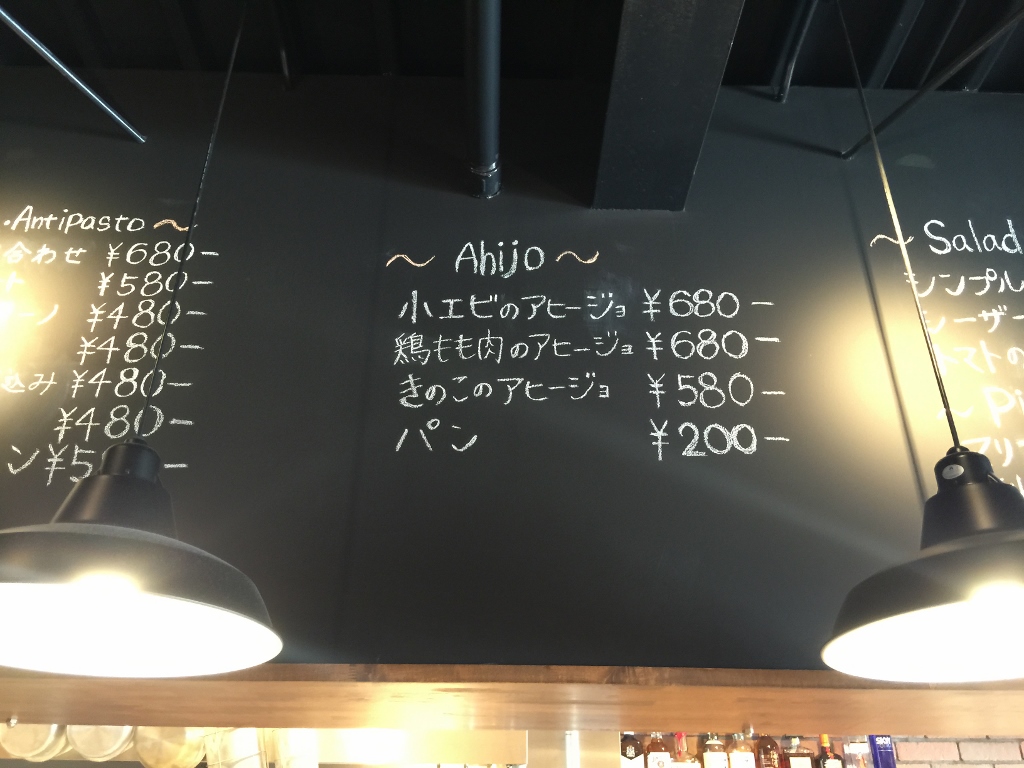 ・Antipasto 〜
合わせ ¥680−
¥580−
¥480−
¥480−
込み ¥480−
¥480−
ン ¥5 −
〜 Ahijo 〜
小エビのアヒージョ ¥680−
鶏もも肉のアヒージョ ¥680−
きのこのアヒージョ ¥580−
パン ¥200−
〜 Salad
シンプル
シーザー
トマトの
〜 Pi